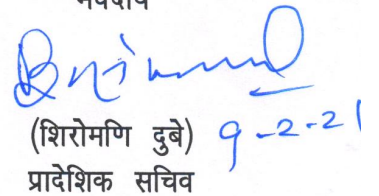 भवदीय
(शिरोमणि दुबे) 9-2-21
प्रादेशिक सचिव